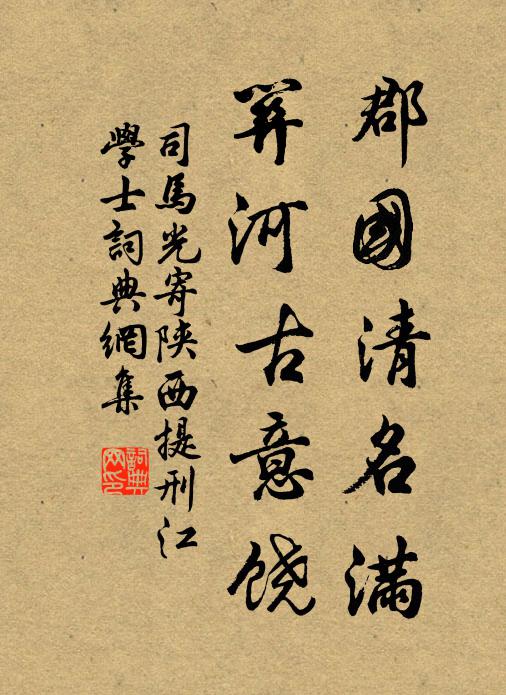 郡國清名滿
關河古意饒
司馬光寄陝西提刑江
學士詞典網集
詞典網印